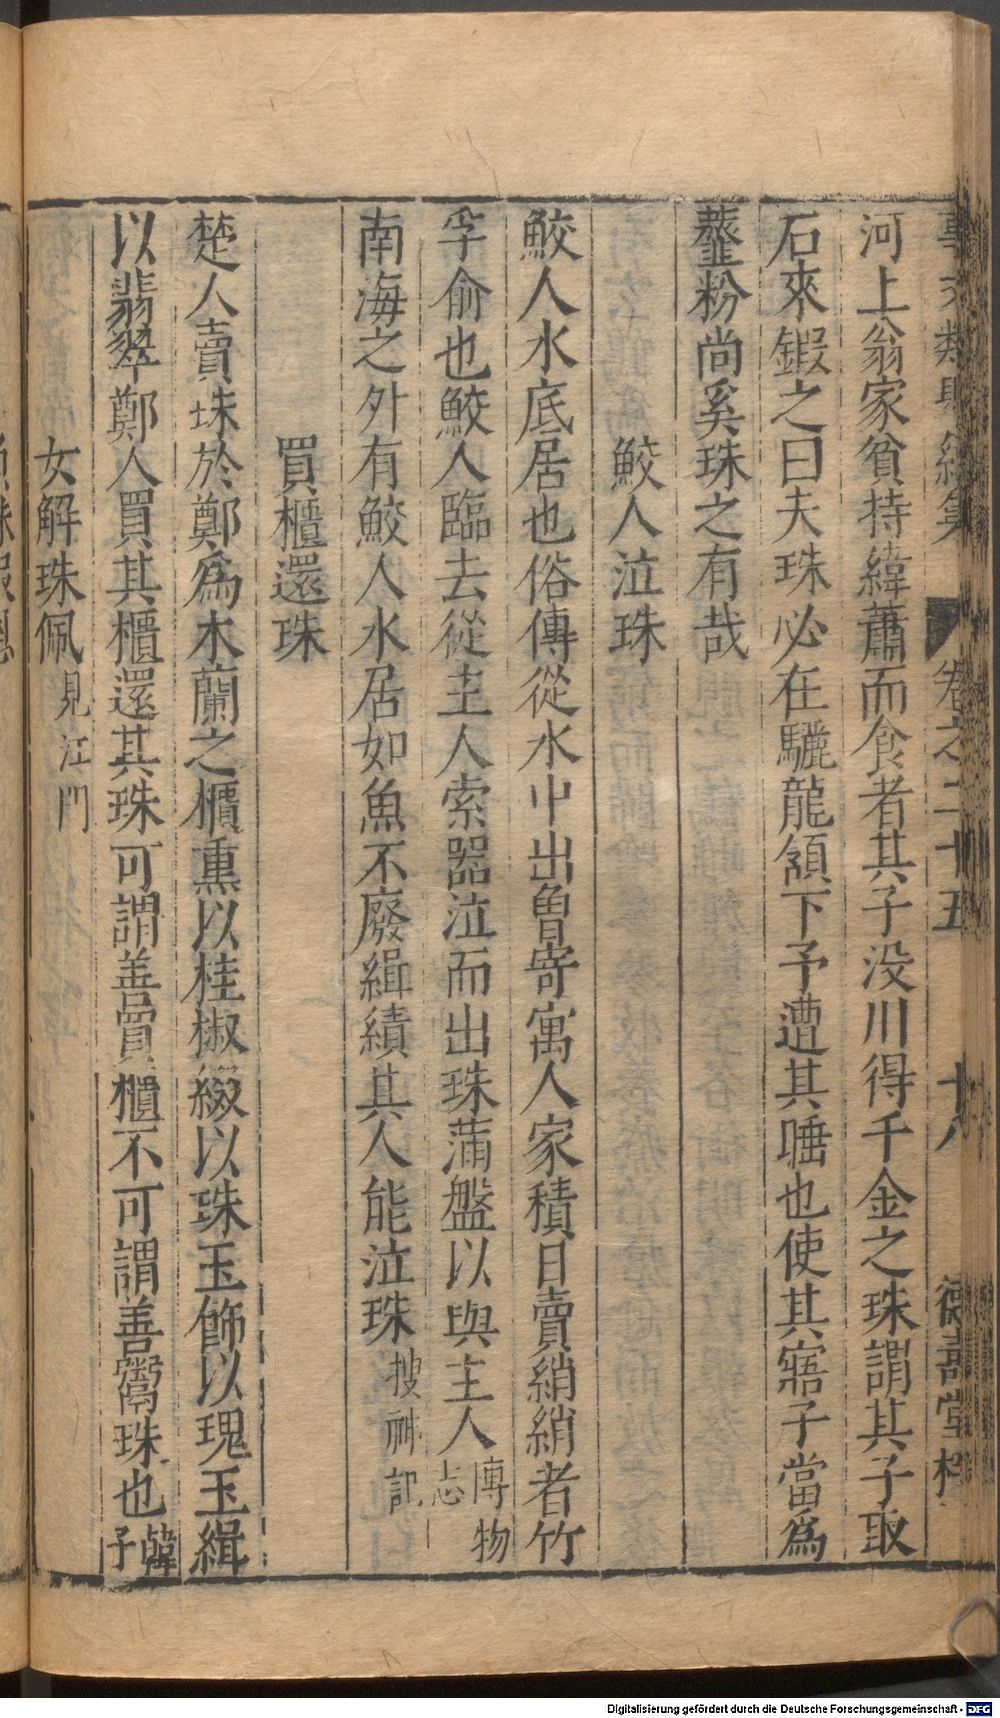 事文類聚 續集 卷之二十五 十八 德壽堂梓
河上翁家貧持緯蕭而食者其子没川得千金之珠謂其子取
石來鍛之曰夫珠必在驪龍頷下予遭其唾也使其寤子當爲
虀粉尚奚珠之有哉
鮫人泣珠
鮫人水底居也俗傳從水中出魯寄寓人家積日賣綃綃者竹
孚俞也鮫人臨去從主人索器泣而出珠蒲盤以與主人 博物志
南海之外有鮫人水居如魚不廢緝績其人能泣珠 搜神記
買櫃還珠
楚人賣珠於鄭爲木蘭之櫃熏以桂椒綴以珠玉飾以瑰玉緝
以翡翠鄭人買其櫃還其珠可謂善賣櫃不可謂善鬻珠也 韓子
女解珠佩 見江門
Digitalisierung gefördert durch die Deutsche Forschungsgemeinschaft - DFG